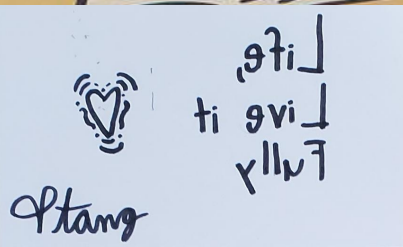 Life,
Live it
Fully
Ptang